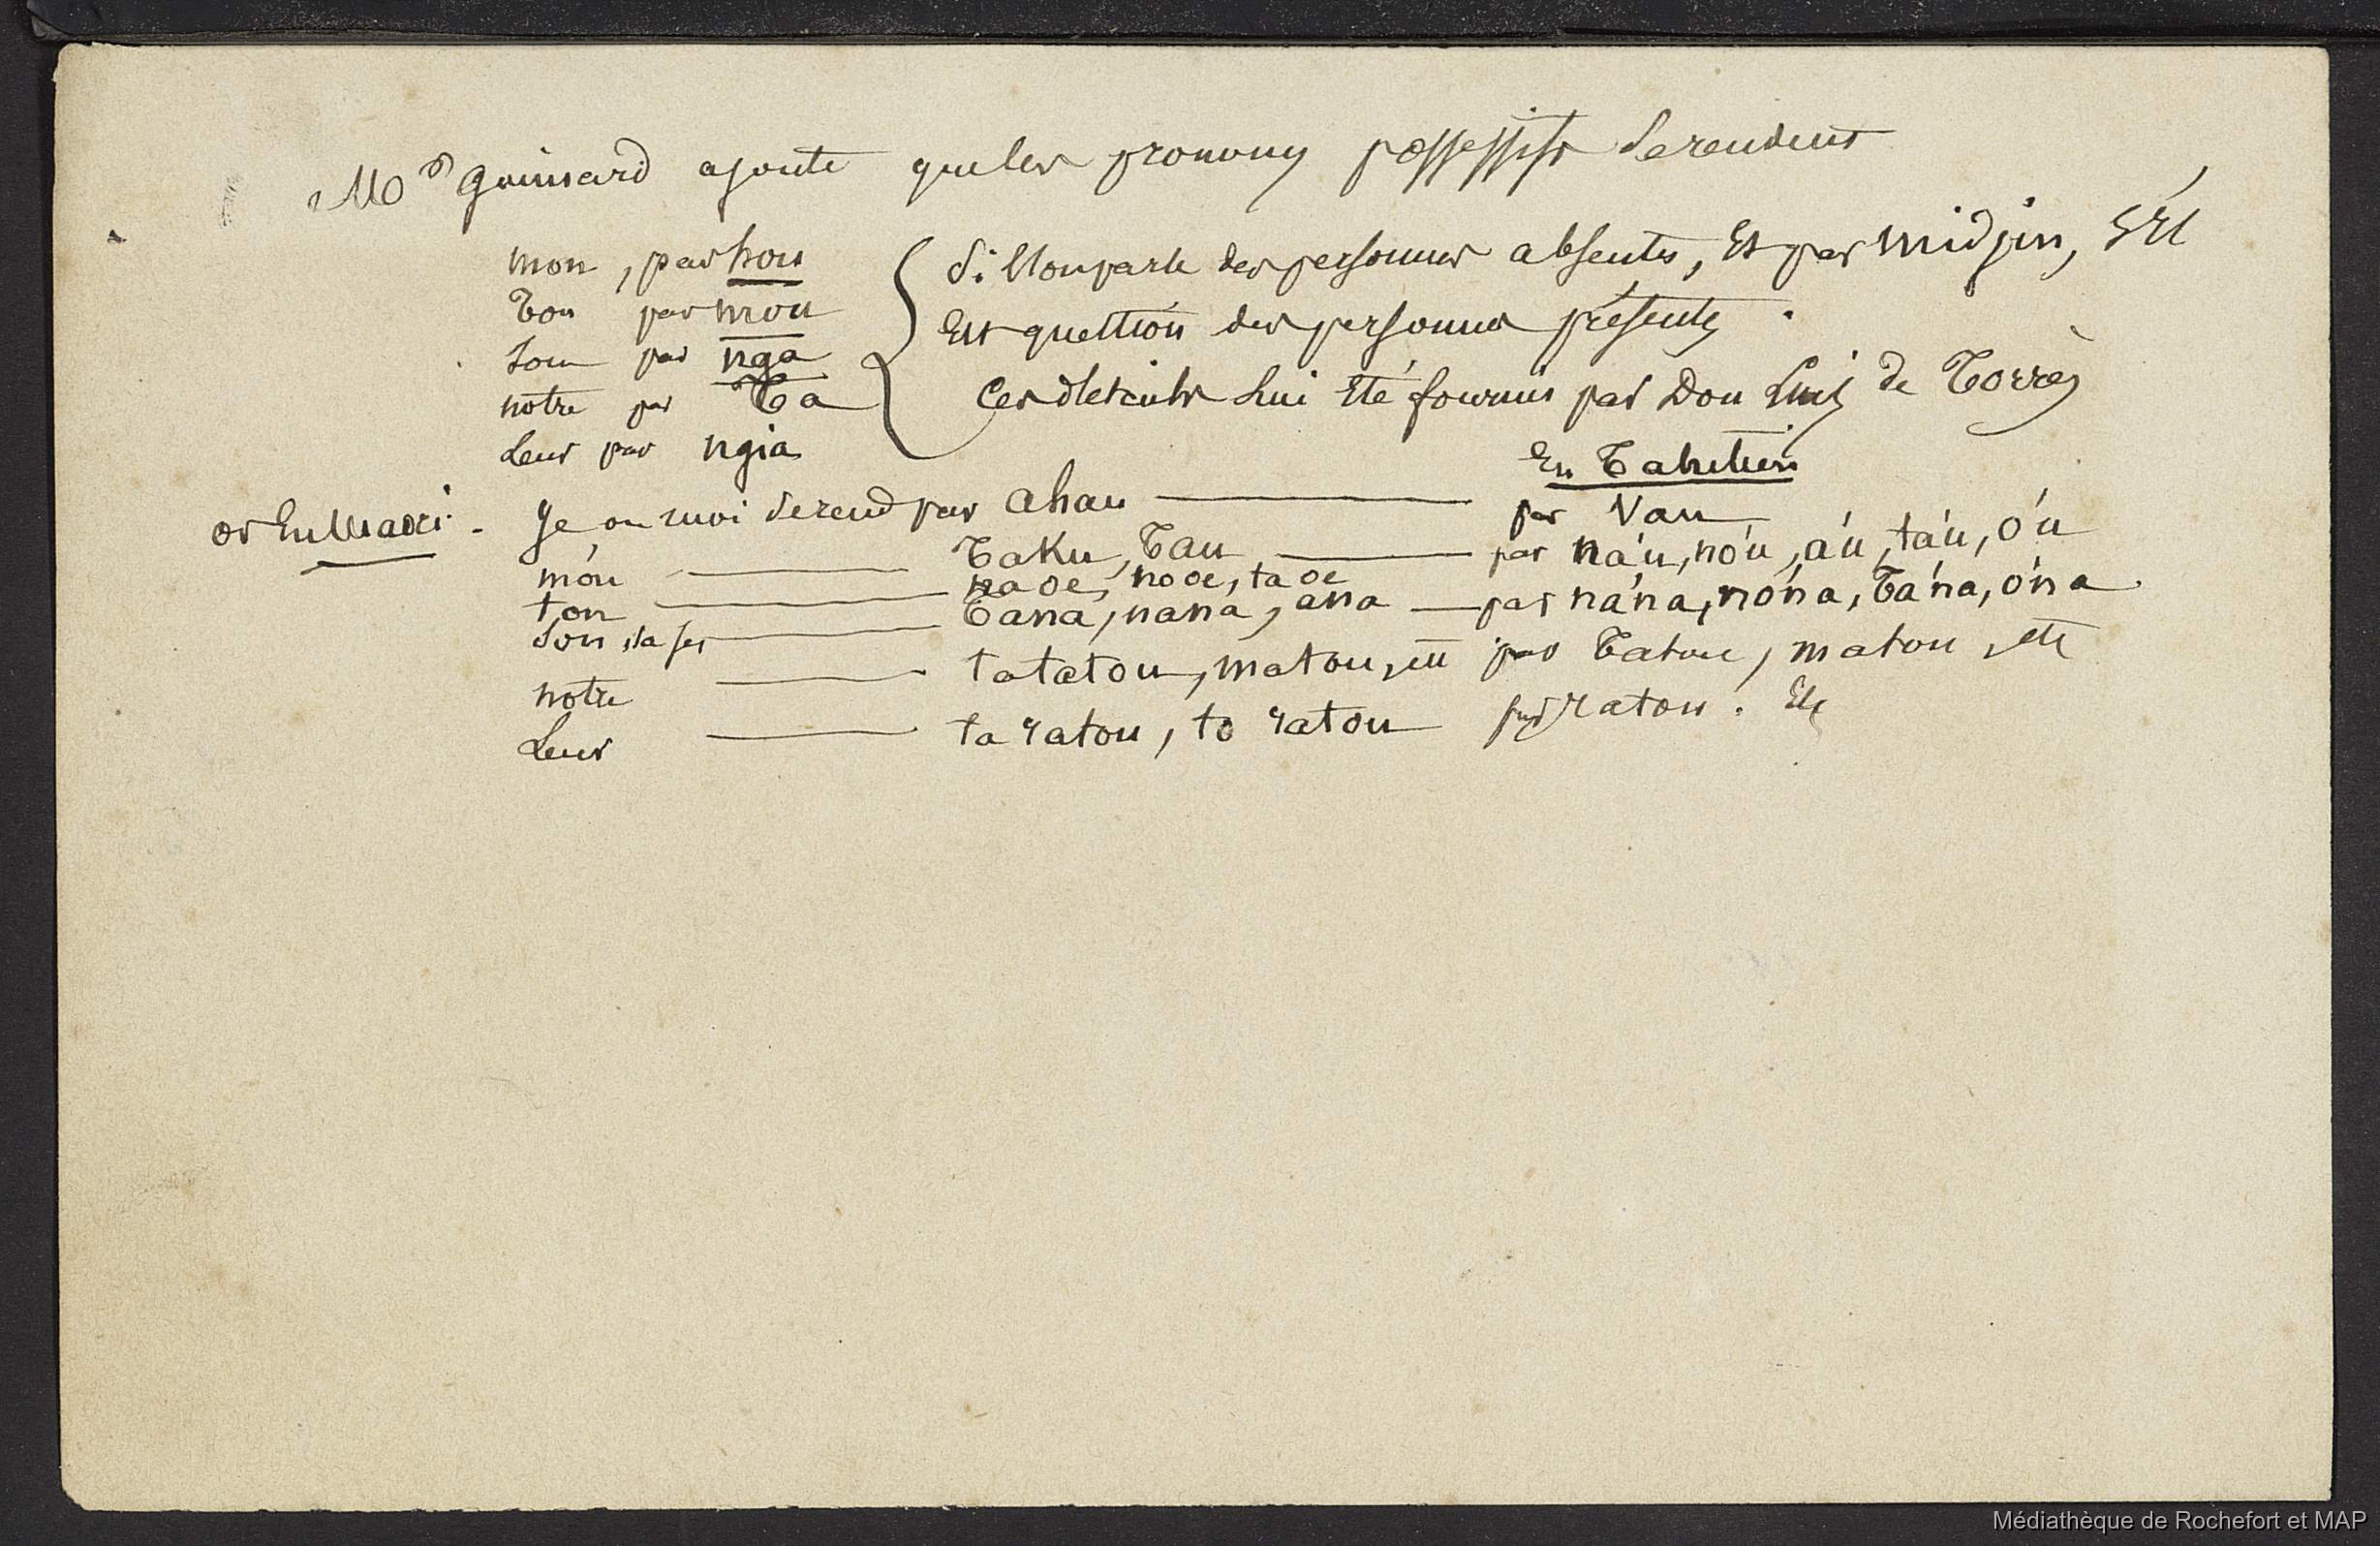 Mr Gaimard ajoute que les pronoms possessifs se rendent
mon, par hou
ton par mou
son par nga
notre par Ta
leur par ngia
si l'on parle des personnes absentes, et par midjin, s'il
est question des personnes présentes.
Ces détails lui été fournis par Don Luis de Torrès
En Tahitien
or en Maori - je ou moi se rend par ahau par Vau
mon Taku, Tau par na'u, no'u, a'u, ta'u, o'u
ton na oe, no oe, ta oe
son, sa, ses Tana, nana, ana par na'na, no'na, Ta'na, o'na
notre ta tatou, matou, etc par Tatou, matou, etc
leur ta ratou, to ratou par ratou. Etc
Médiathèque de Rochefort et MAP